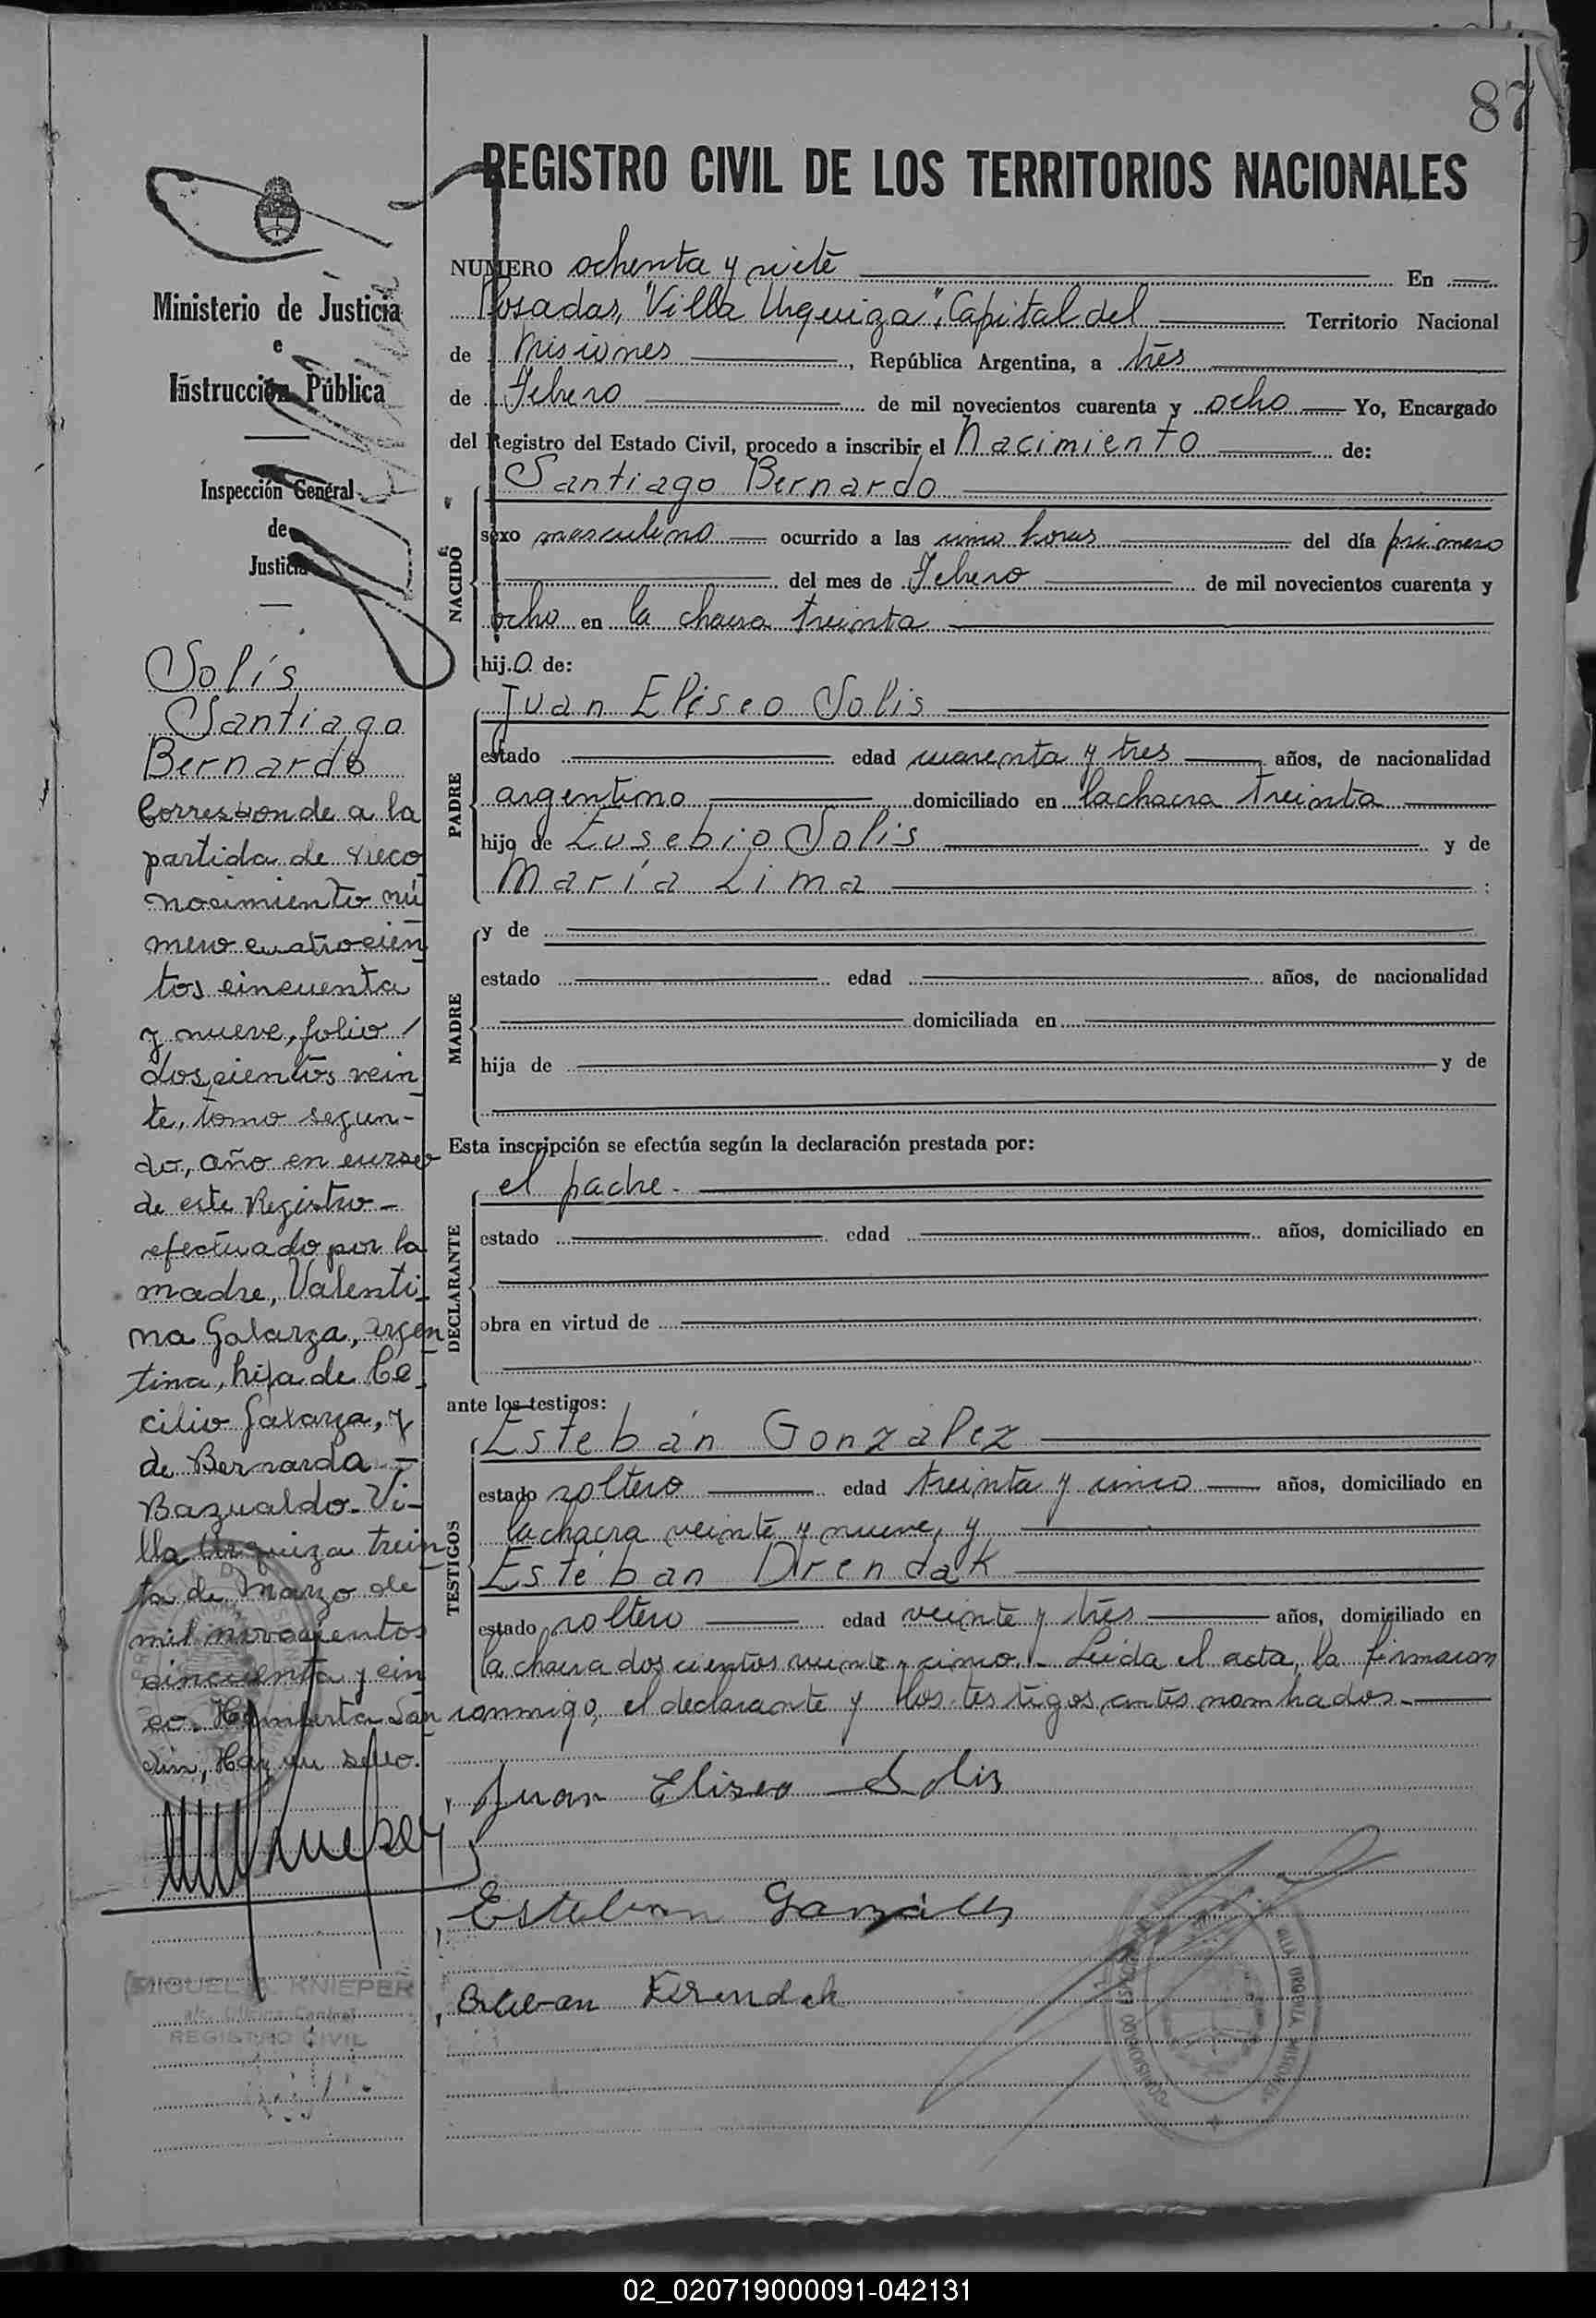 87
REGISTRO CIVIL DE LOS TERRITORIOS NACIONALES
Ministerio de Justicia
e
Instrucción Pública
Inspección General
de
Justicia
NUMERO ochenta y siete En
Posadas, "Villa Urquiza", Capital del Territorio Nacional
de Misiones, República Argentina, a trés
de Febrero de mil novecientos cuarenta y ocho Yo, Encargado
del Registro del Estado Civil, procedo a inscribir el Nacimiento de:
NACIDO
Santiago Bernardo
sexo masculino ocurrido a las cinco horas del día primero
del mes de Febrero de mil novecientos cuarenta y
ocho en la chacra treinta
hijo de:
PADRE
Juan Eliseo Solis
estado edad cuarenta y tres años, de nacionalidad
argentino domiciliado en la chacra treinta
hijo de Eusebio Solis y de
María Lima :
MADRE
y de
estado edad años, de nacionalidad
domiciliada en
hija de y de
Esta inscripción se efectúa según la declaración prestada por:
DECLARANTE
el padre.-
estado edad años, domiciliado en
obra en virtud de
ante los testigos:
TESTIGOS
Esteban Gonzalez
estado soltero edad treinta y cinco años, domiciliado en
la chacra veinte y nueve, y
Estéban Drendak
estado soltero edad veinte y trés años, domiciliado en
la chacra dos cientos veinte y cinco.- Leida el acta, la firmaron
conmigo, el declarante y los testigos antes nombrados.-
Juan Eliseo Solis
Esteban Gonzáles
Esteban Derendak
Solís
Santiago
Bernardo
Corresponde a la
partida de reco
nocimiento nú
mero cuatrocien
tos cincuenta
y nueve, folio /
doscientos vein
te, tomo segun-
do, año en curso
de este Registro-
efectuado por la
madre, Valenti-
na Galarza, argen
tina, hija de Ce-
cilio Galarza, y
de Bernarda
Bazualdo.- Vi-
lla Urquiza trein
ta de Marzo de
mil novecientos
cincuenta y cin
co. Humberta San
din, Hay un sello.
MIGUEL A. KNIEPER
a/c. Oficina Central
REGISTRO CIVIL
VILLA URQUIZA MISIONES
02_020719000091-042131